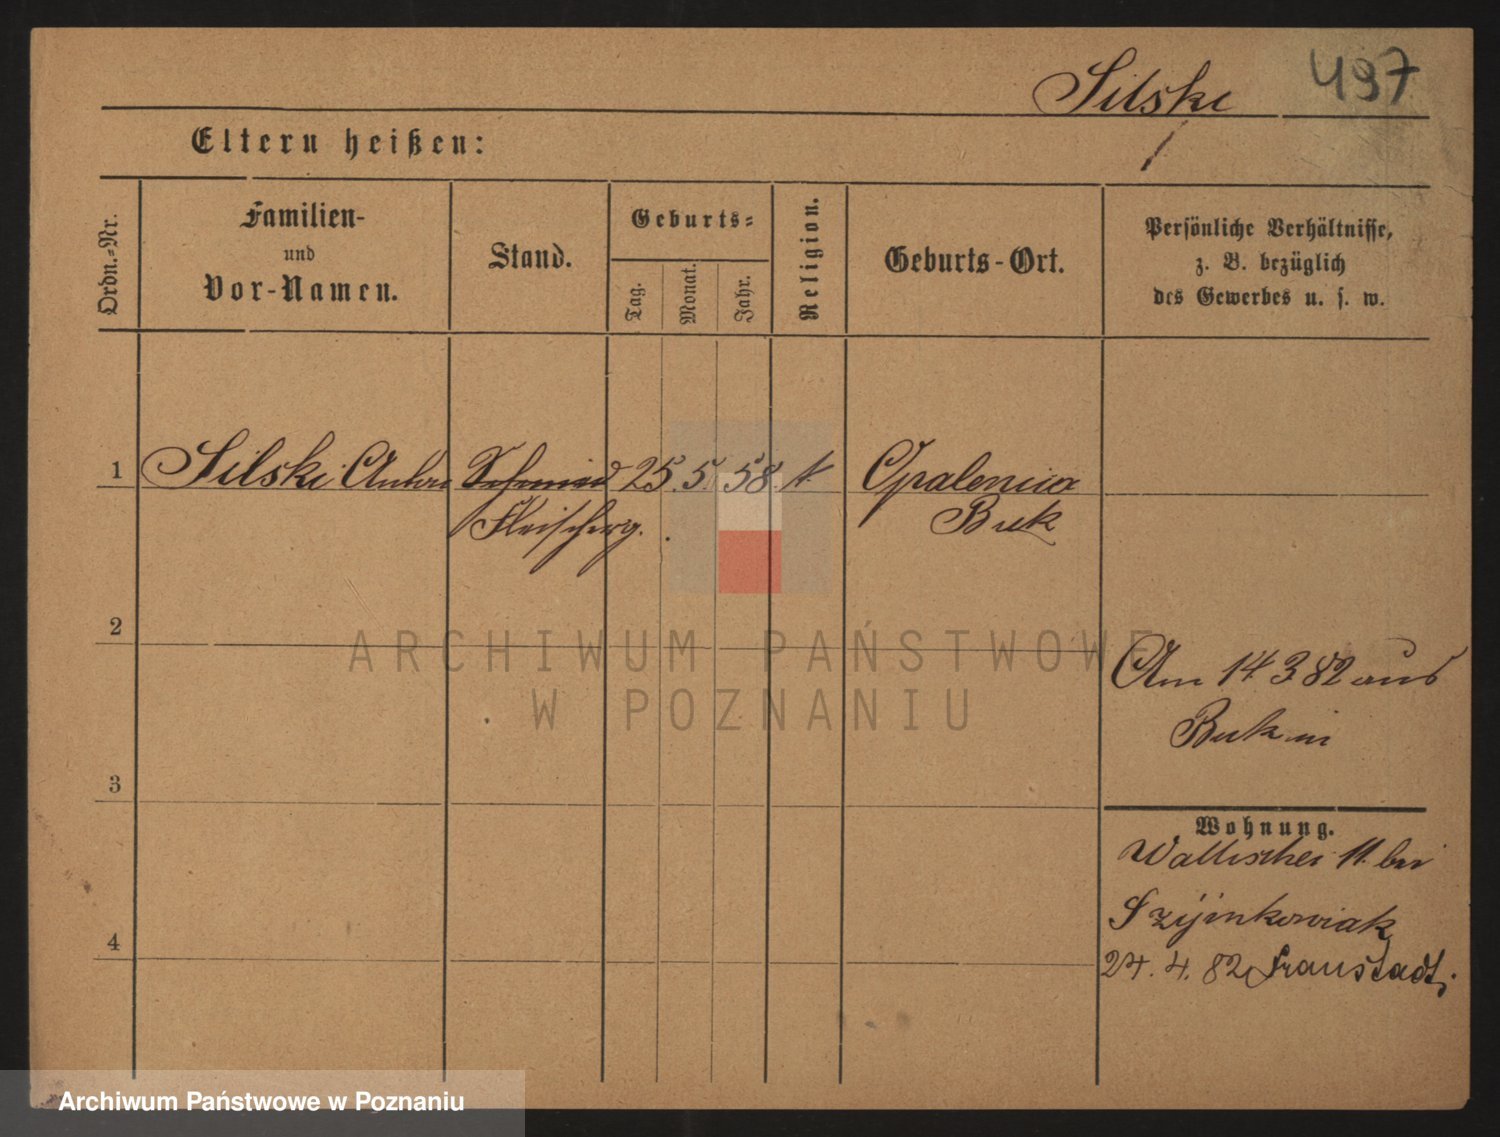 Silski 497
Eltern heißen:
Ordn.-Nr.
Familien-
und
Vor-Namen.
Stand.
Geburts-
Tag.
Monat.
Jahr.
Religion.
Geburts-Ort.
Persönliche Verhältnisse,
z. B. bezüglich
des Gewerbes u. s. w.
1 Silski Anton Schmied 25. 5. 58. k. Opalenica
Fleischerg. Buk
2
ARCHIWUM PAŃSTWOWE
W POZNANIU
Am 14 3 82 aus
Buk
3
Wohnung.
Wallischei 11. bei
Szijmkowiak
4
24. 4. 82 Fraustadt,
Archiwum Państwowe w Poznaniu